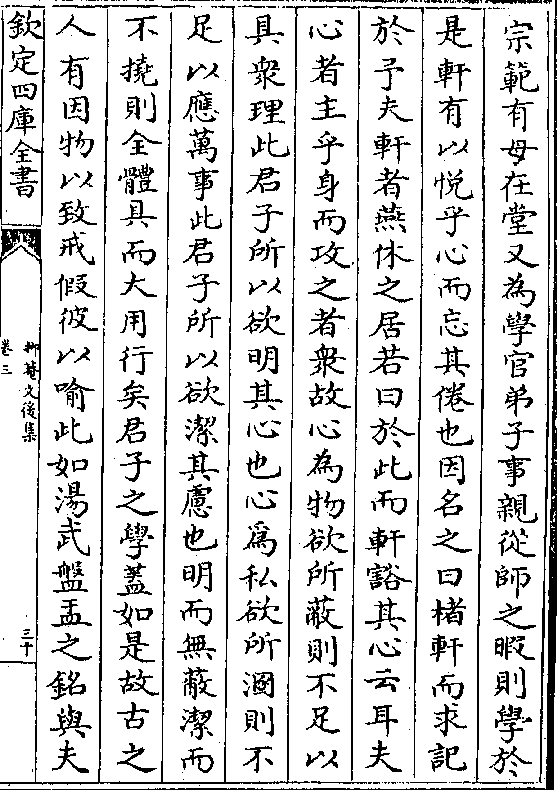 宗範有母在堂又為學官弟子事親從師之暇則學於
是軒有以悅乎心而忘其倦也因名之曰楮軒而求記
於予夫軒者燕休之居若曰於此而軒豁其心云耳夫
心者主乎身而攻之者衆故心為物欲所蔽則不足以
具衆理此君子所以欲明其心也心爲私欲所溷則不
足以應萬事此君子所以欲潔其慮也明而無蔽潔而
不撓則全體具而大用行矣君子之學蓋如是故古之
人有因物以致戒假彼以喻此如湯武盤盂之銘與夫
欽定四庫全書
卷三
抑菴文後集
三十